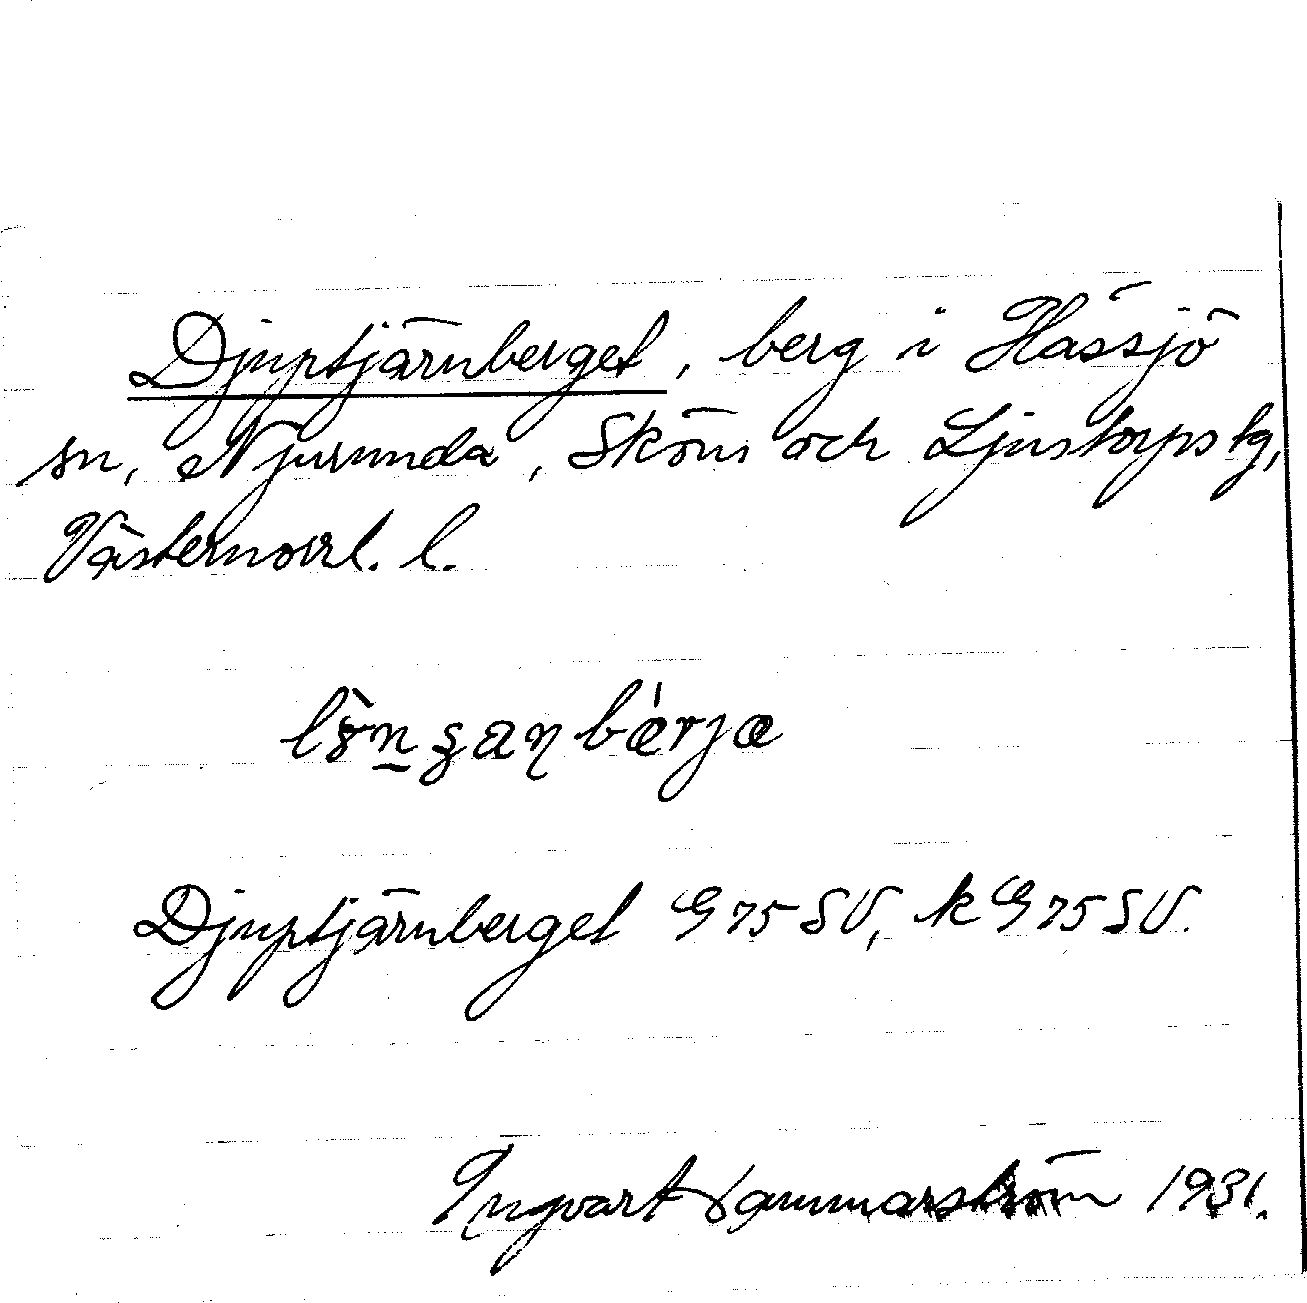 Djuptjärnberget, berg i Hässjö
sn, Njurunda, Sköns och Ljustorps tg,
Västernorrl. l.
bǽrjæ
Djuptjärnberget G 75 SV, k G 75 SV.
Ingvart Hammarström 1931.